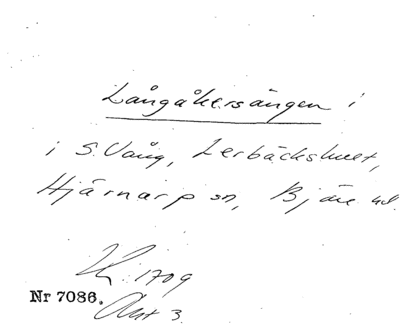 Långåkersängen i
i S. Vång, Lerbäckshult,
Hjärnarp sn, Bjäre hd.
1709
Nr 7086. Akt 3